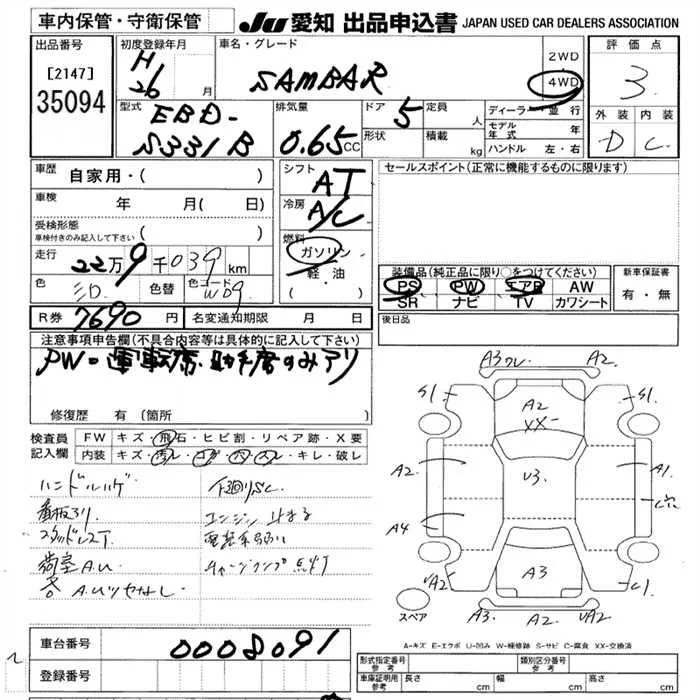 車内保管・守衛保管
JU 愛知 出品申込書 JAPAN USED CAR DEALERS ASSOCIATION
出品番号
[2147]
35094
初度登録年月
H
26 月
車名・グレード
SAMBAR
2WD
4WD
評価点
3
外装 内装
D C
型式
EBD-
S331B
排気量
0.65 CC
ドア
5
形状
定員
人
積載
kg
ディーラー・並行
モデル年式 年
ハンドル 左・右
車歴
自家用・( )
車検
年 月( 日)
受検形態
車検付きのみ記入して下さい
走行
22万9千039km
色
色替
色コード
W09
R券 7690円
名変通知期限 月 日
シフト
AT
冷房
A/C
燃料
ガソリン
軽油
( )
セールスポイント(正常に機能するものに限ります)
装備品(純正品に限り○をつけてください)
PS PW エアB AW
SR ナビ TV カワシート
新車保証書
有・無
後日品
注意事項申告欄(不具合内容等は具体的に記入して下さい)
PW=運転席、助手席のみアリ
修復歴 有(箇所
検査員
記入欄
FW キズ・飛石・ヒビ割・リペア跡・X要
内装 キズ・汚レ・コゲ・穴・スレ・キレ・破レ
ハンドルハゲ
看板アリ
スタッドレスT
荷室A.U
下廻りS.C
エンジン止まる
電装系弱い
チャージランプ点灯
A3 ワレ A2
S1 S1
A2
XX
A2 U3 A1
A4
UA2 A3 C1
A3 A2 UA2
スペア
A-キズ E-エクボ U-凹み W-補修跡 S-サビ C-腐食 XX-交換済
車台番号
0008091
登録番号
形式指定番号
参考
類別区分番号
参考
車庫証明用
参考
長さ cm
幅 cm
高さ cm